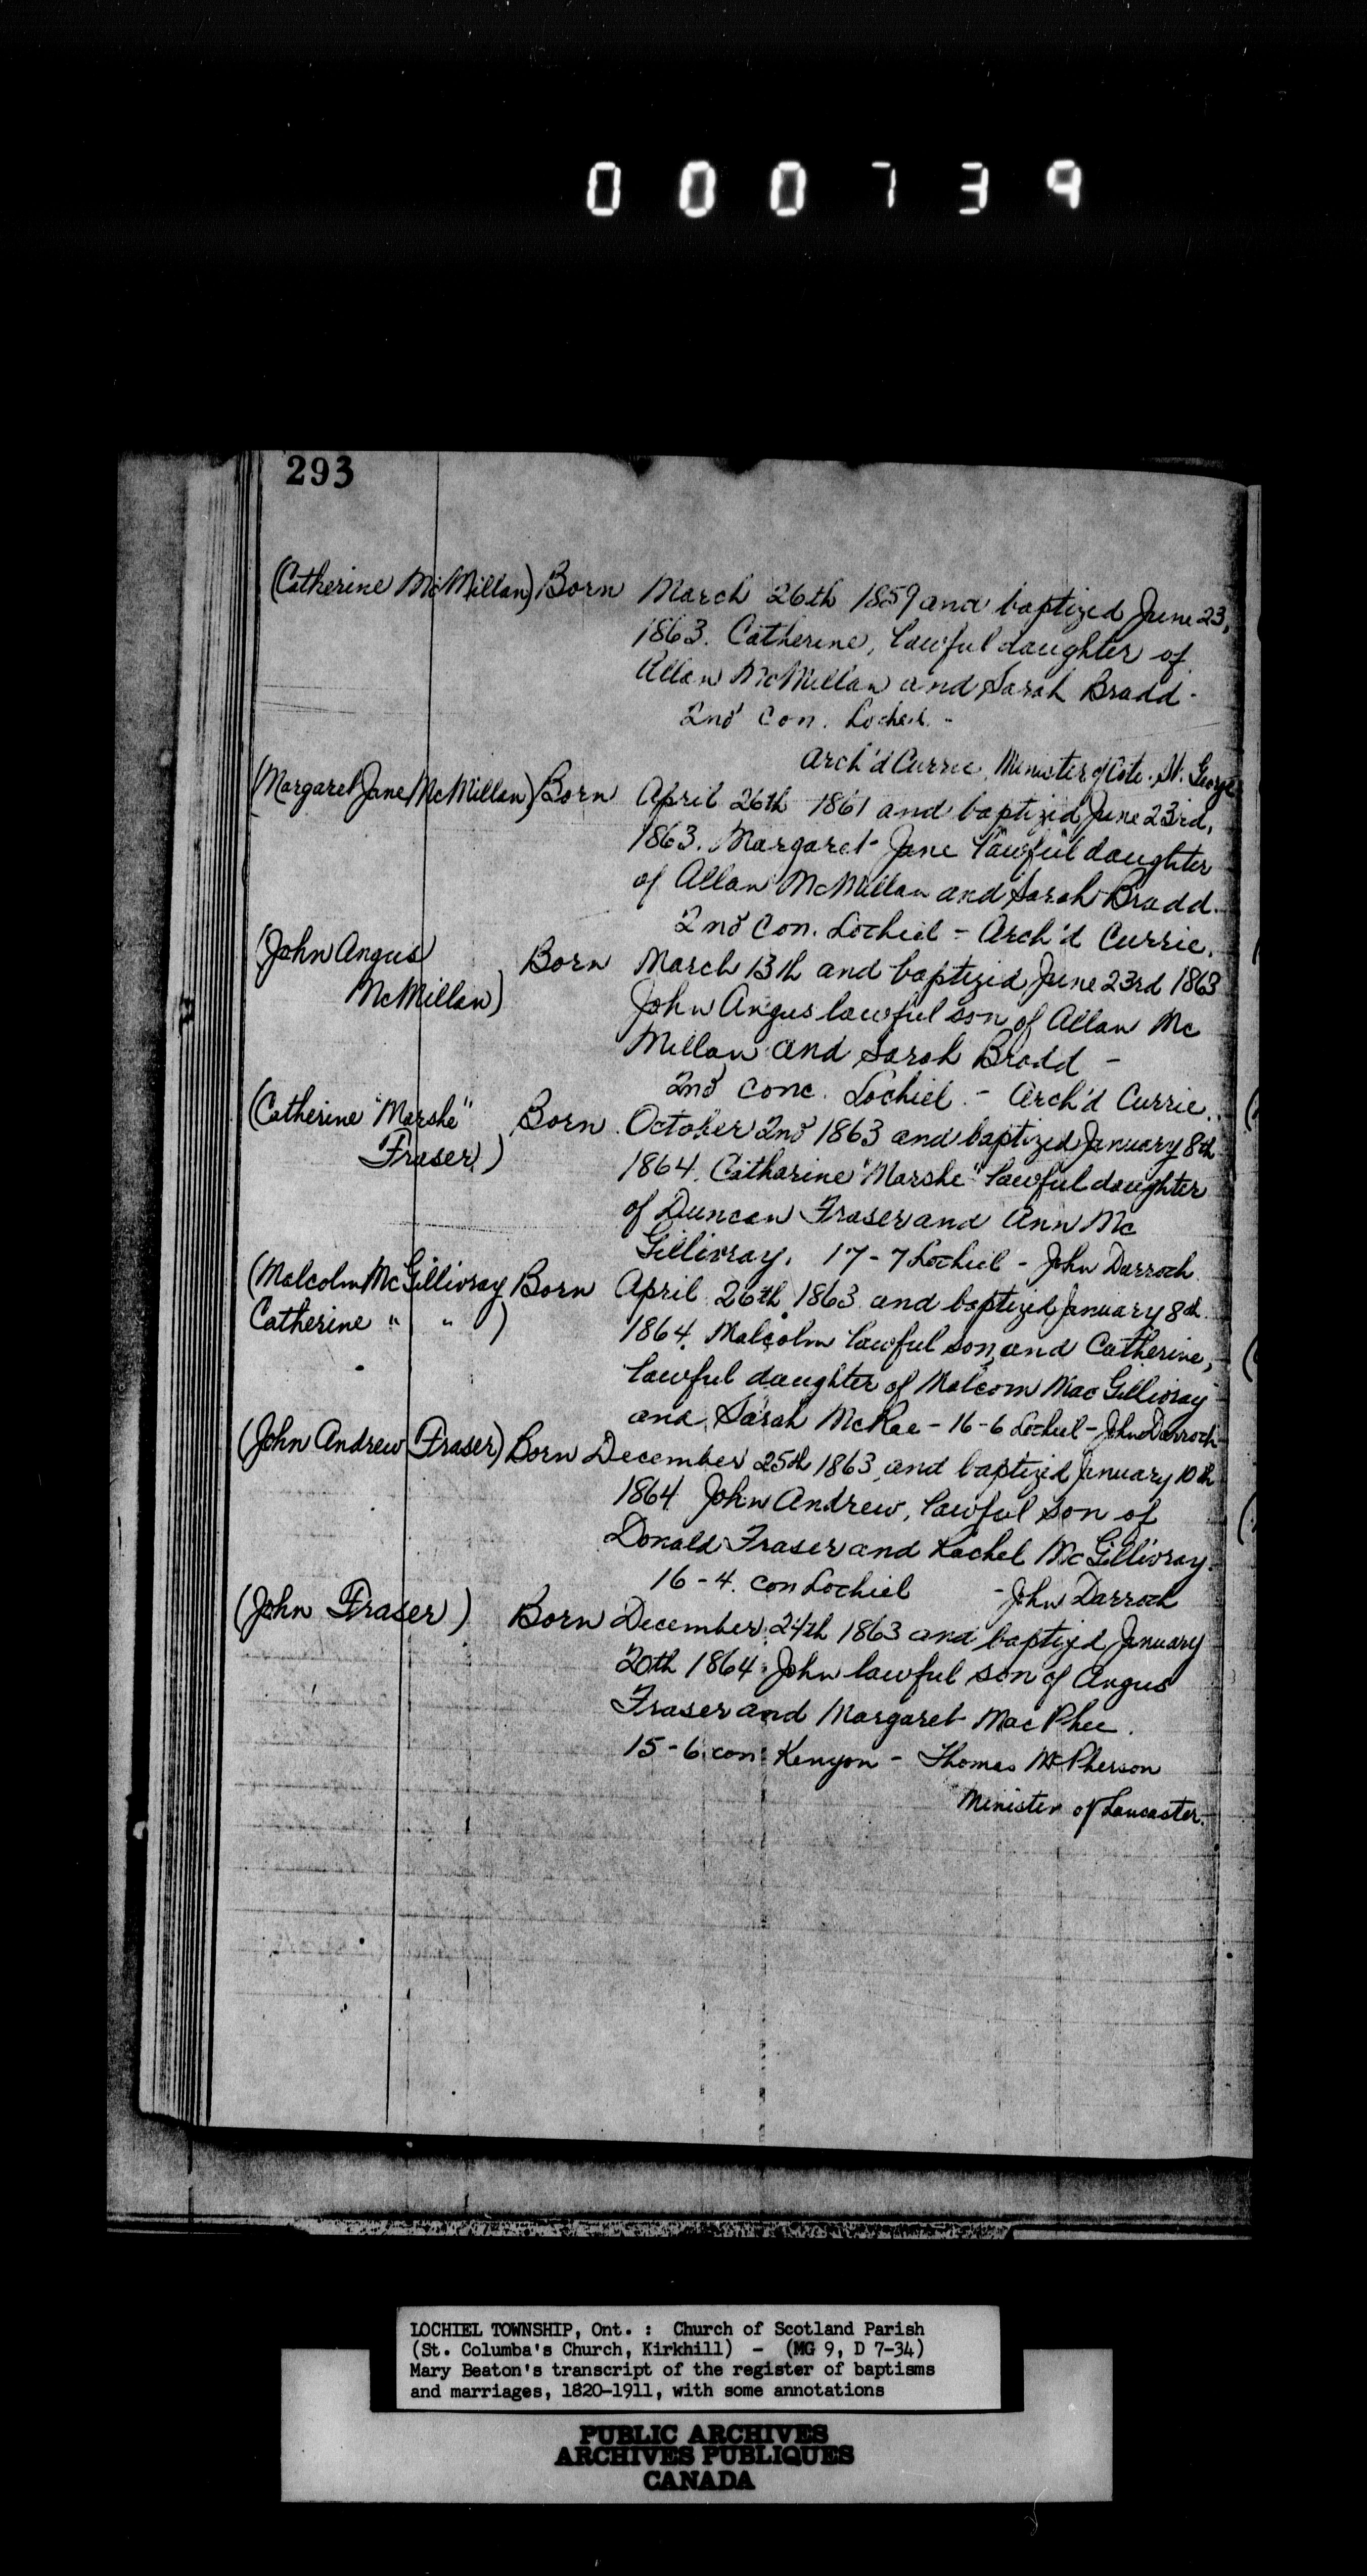 000739
293
(Catherine McMillan) Born March 26th 1859 and baptized June 23,
1863. Catherine, lawful daughter of
Allan McMillan and Sarah Bradd -
2nd Con. Lochiel. -
Arch'd Currie, Minister of Cote. St. George
(Margaret Jane McMillan) Born April 26th 1861 and baptized June 23rd,
1863. Margaret Jane lawful daughter
of Allan McMillan and Sarah Bradd.
2nd Con. Lochiel - Arch'd Currie.
(John Angus Born March 13th and baptized June 23rd 1863
McMillan) John Angus lawful son of Allan Mc
Millan and Sarah Bradd -
2nd Conc. Lochiel. - Arch'd Currie.
(Catherine "Marshe" Born October 2nd 1863 and baptized January 8th
Fraser) 1864. Catharine "Marshe" lawful daughter
of Duncan Fraser and Ann Mc
Gillivray. 17-7 Lochiel - John Darroch
(Malcolm McGillivray Born April 26th 1863 and baptized January 8th
Catherine " " ) 1864. Malcolm lawful son, and Catherine,
lawful daughter of Malcom MacGillivray
and Sarah McRae - 16-6 Lochiel - John Darroch
(John Andrew Fraser) Born December 25th 1863, and baptized January 10th
1864 John Andrew, lawful son of
Donald Fraser and Rachel McGillivray.
16-4. con Lochiel - John Darroch
(John Fraser) Born December 24th 1863 and baptized January
20th 1864. John lawful son of Angus
Fraser and Margaret MacPhee.
15-6 con Kenyon - Thomas McPherson
Minister of Lancaster.
LOCHIEL TOWNSHIP, Ont. : Church of Scotland Parish
(St. Columba's Church, Kirkhill) - (MG 9, D 7-34)
Mary Beaton's transcript of the register of baptisms
and marriages, 1820-1911, with some annotations
PUBLIC ARCHIVES
ARCHIVES PUBLIQUES
CANADA